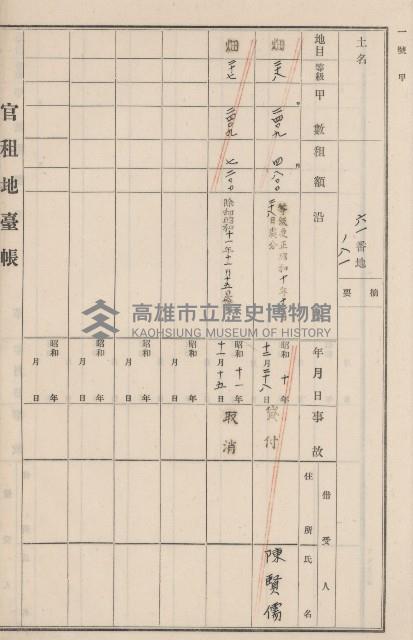 一號甲
土名
六一番地
ノ八一
摘要
地目
等級
甲數
租額
沿
年月日
事故
借受人
住所
氏名
畑
二四〇九
四八〇〇
等級更正昭和十年十
昭和十年
十二月二十八日
貸付
陳賢儒
畑
二四〇九
七二〇〇
昭和十一年
十一月十五日
取消
昭和年
月日
昭和年
月日
昭和年
月日
昭和年
月日
官租地臺帳
高雄市立歷史博物館
KAOHSIUNG MUSEUM OF HISTORY